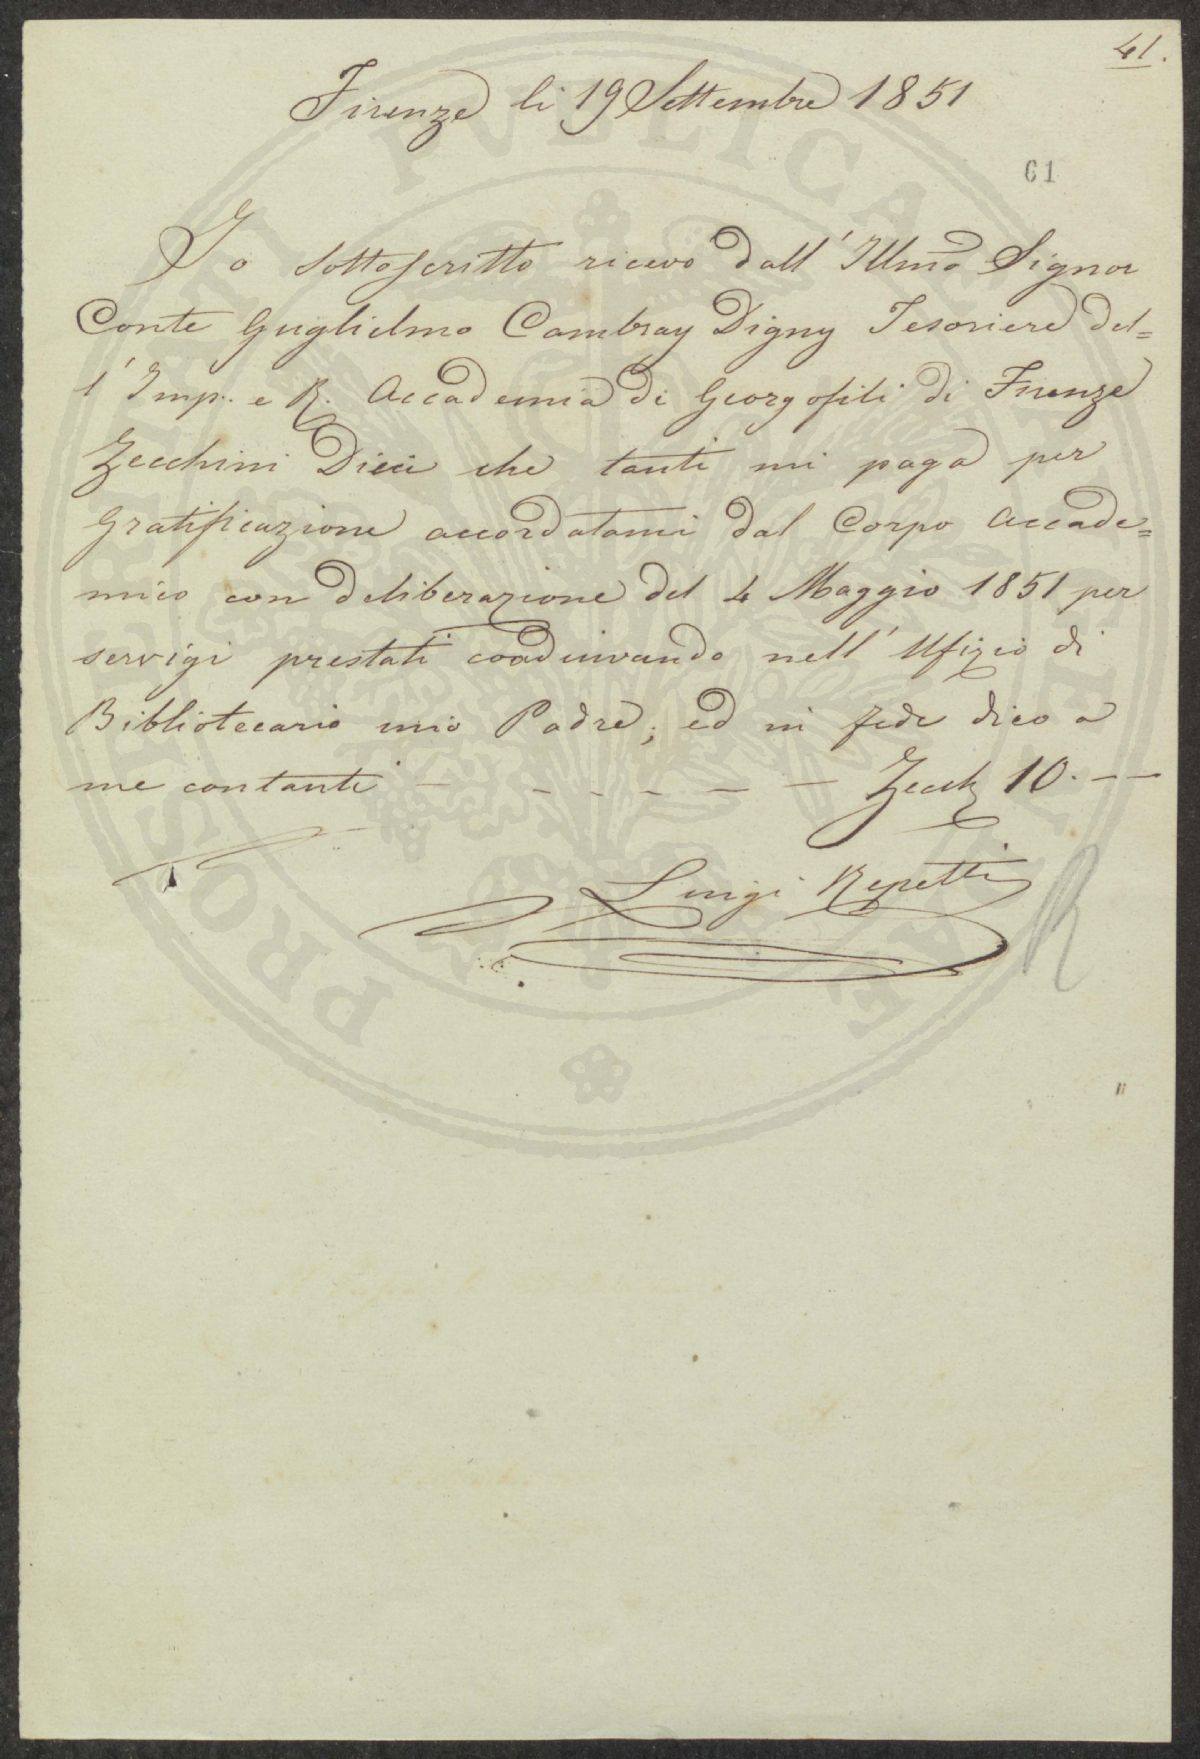 41.
Firenze li 19 Settembre 1851
61
Io sottoscritto ricevo dall' Illmo Signor
Conte Guglielmo Cambray Digny Tesoriere del=
l' Imp. e R. Accademia di Georgofili di Firenze
Zecchini Dieci che tanti mi paga per
Gratificazione accordatami dal Corpo Accade=
mico con deliberazione del 4 Maggio 1851 per
servigi prestati coadiuvando nell' Ufizio di
Bibliotecario mio Padre; ed in fede dico a
me contanti - - - - - - - Zecch 10. - -
Luigi Repetti
R
PROSPERITATI PVBLICAE AVGENDAE